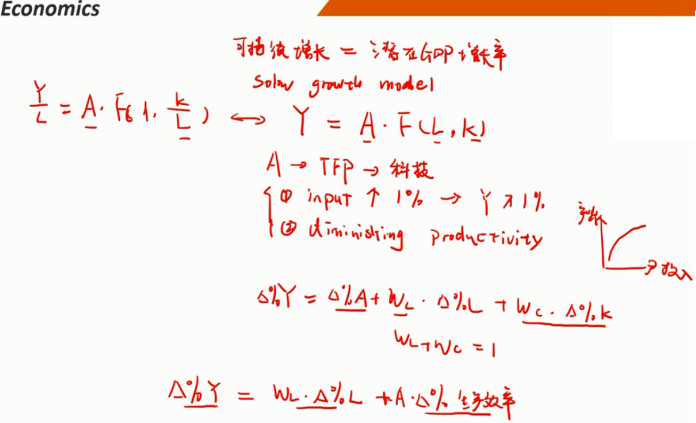 Economics
可持续增长 = 潜在GDP增长率
Solow growth model
Y/L = A · F(1, K/L) ↔ Y = A · F(L, K)
A → TFP → 科技
① input ↑ 1% → Y ↗ 1%
② diminishing productivity
产出
投入
Δ%Y = Δ%A + WL · Δ%L + Wc · Δ%K
WL + Wc = 1
Δ%Y = WL · Δ%L + A · Δ% 生产效率